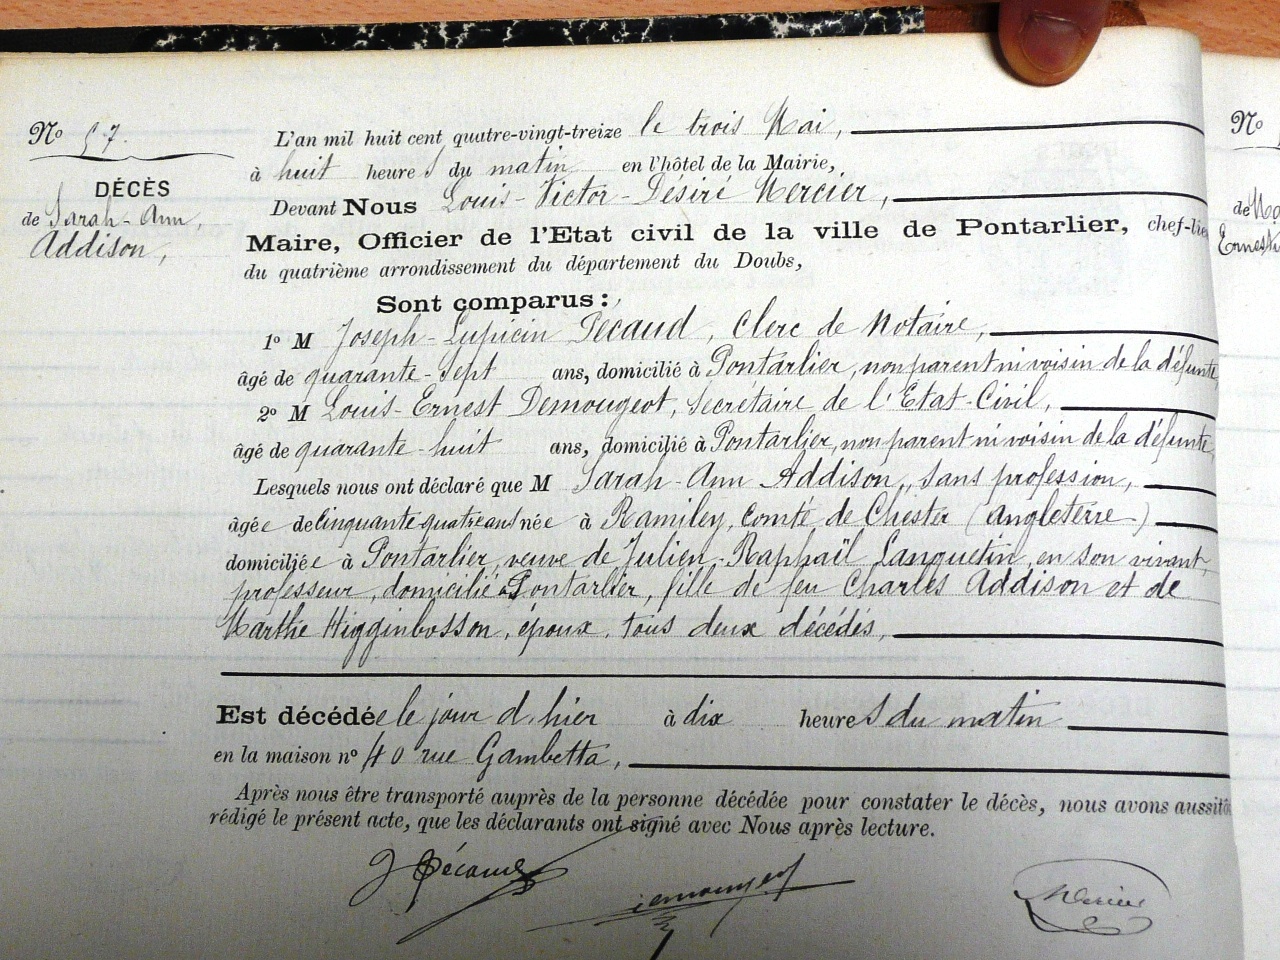 No 57.
DÉCÈS
de Sarah-Ann,
Addison,
L'an mil huit cent quatre-vingt-treize le trois Mai,
à huit heures du matin en l'hôtel de la Mairie,
Devant Nous Louis-Victor-Désiré Mercier,
Maire, Officier de l'Etat civil de la ville de Pontarlier, chef-lieu
du quatrième arrondissement du département du Doubs,
Sont comparus :
1o M Joseph-Lupicin Pécaud, Clerc de Notaire,
âgé de quarante-sept ans, domicilié à Pontarlier, non parent ni voisin de la défunte,
2o M Louis-Ernest Demougeot, Secrétaire de l'Etat-Civil,
âgé de quarante-huit ans, domicilié à Pontarlier, non parent ni voisin de la défunte,
Lesquels nous ont déclaré que M Sarah-Ann Addison, sans profession,
âgée de cinquante quatre ans née à Ramiley, Comté de Chester (Angleterre)
domiciliée à Pontarlier, veuve de Julien-Raphaël Lanquetin, en son vivant,
professeur, domicilié à Pontarlier, fille de feu Charles Addison et de
Marthe Higginbosson, époux, tous deux décédés,
Est décédée le jour d'hier à dix heures du matin
en la maison no 40 rue Gambetta,
Après nous être transporté auprès de la personne décédée pour constater le décès, nous avons aussitôt
rédigé le présent acte, que les déclarants ont signé avec Nous après lecture.
J Pécaud Demougeot Mercier
No
de
Ernest